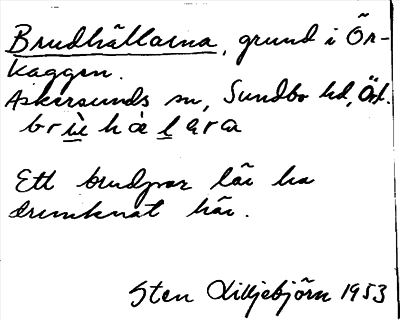 Brudhällarna, grund i Ör-
kaggen.
Askersunds sn, Sundbo hd, Örl.
brùhàlara
Ett brudpar lär ha
drunknat här.
Sten Liljebjörn 1953